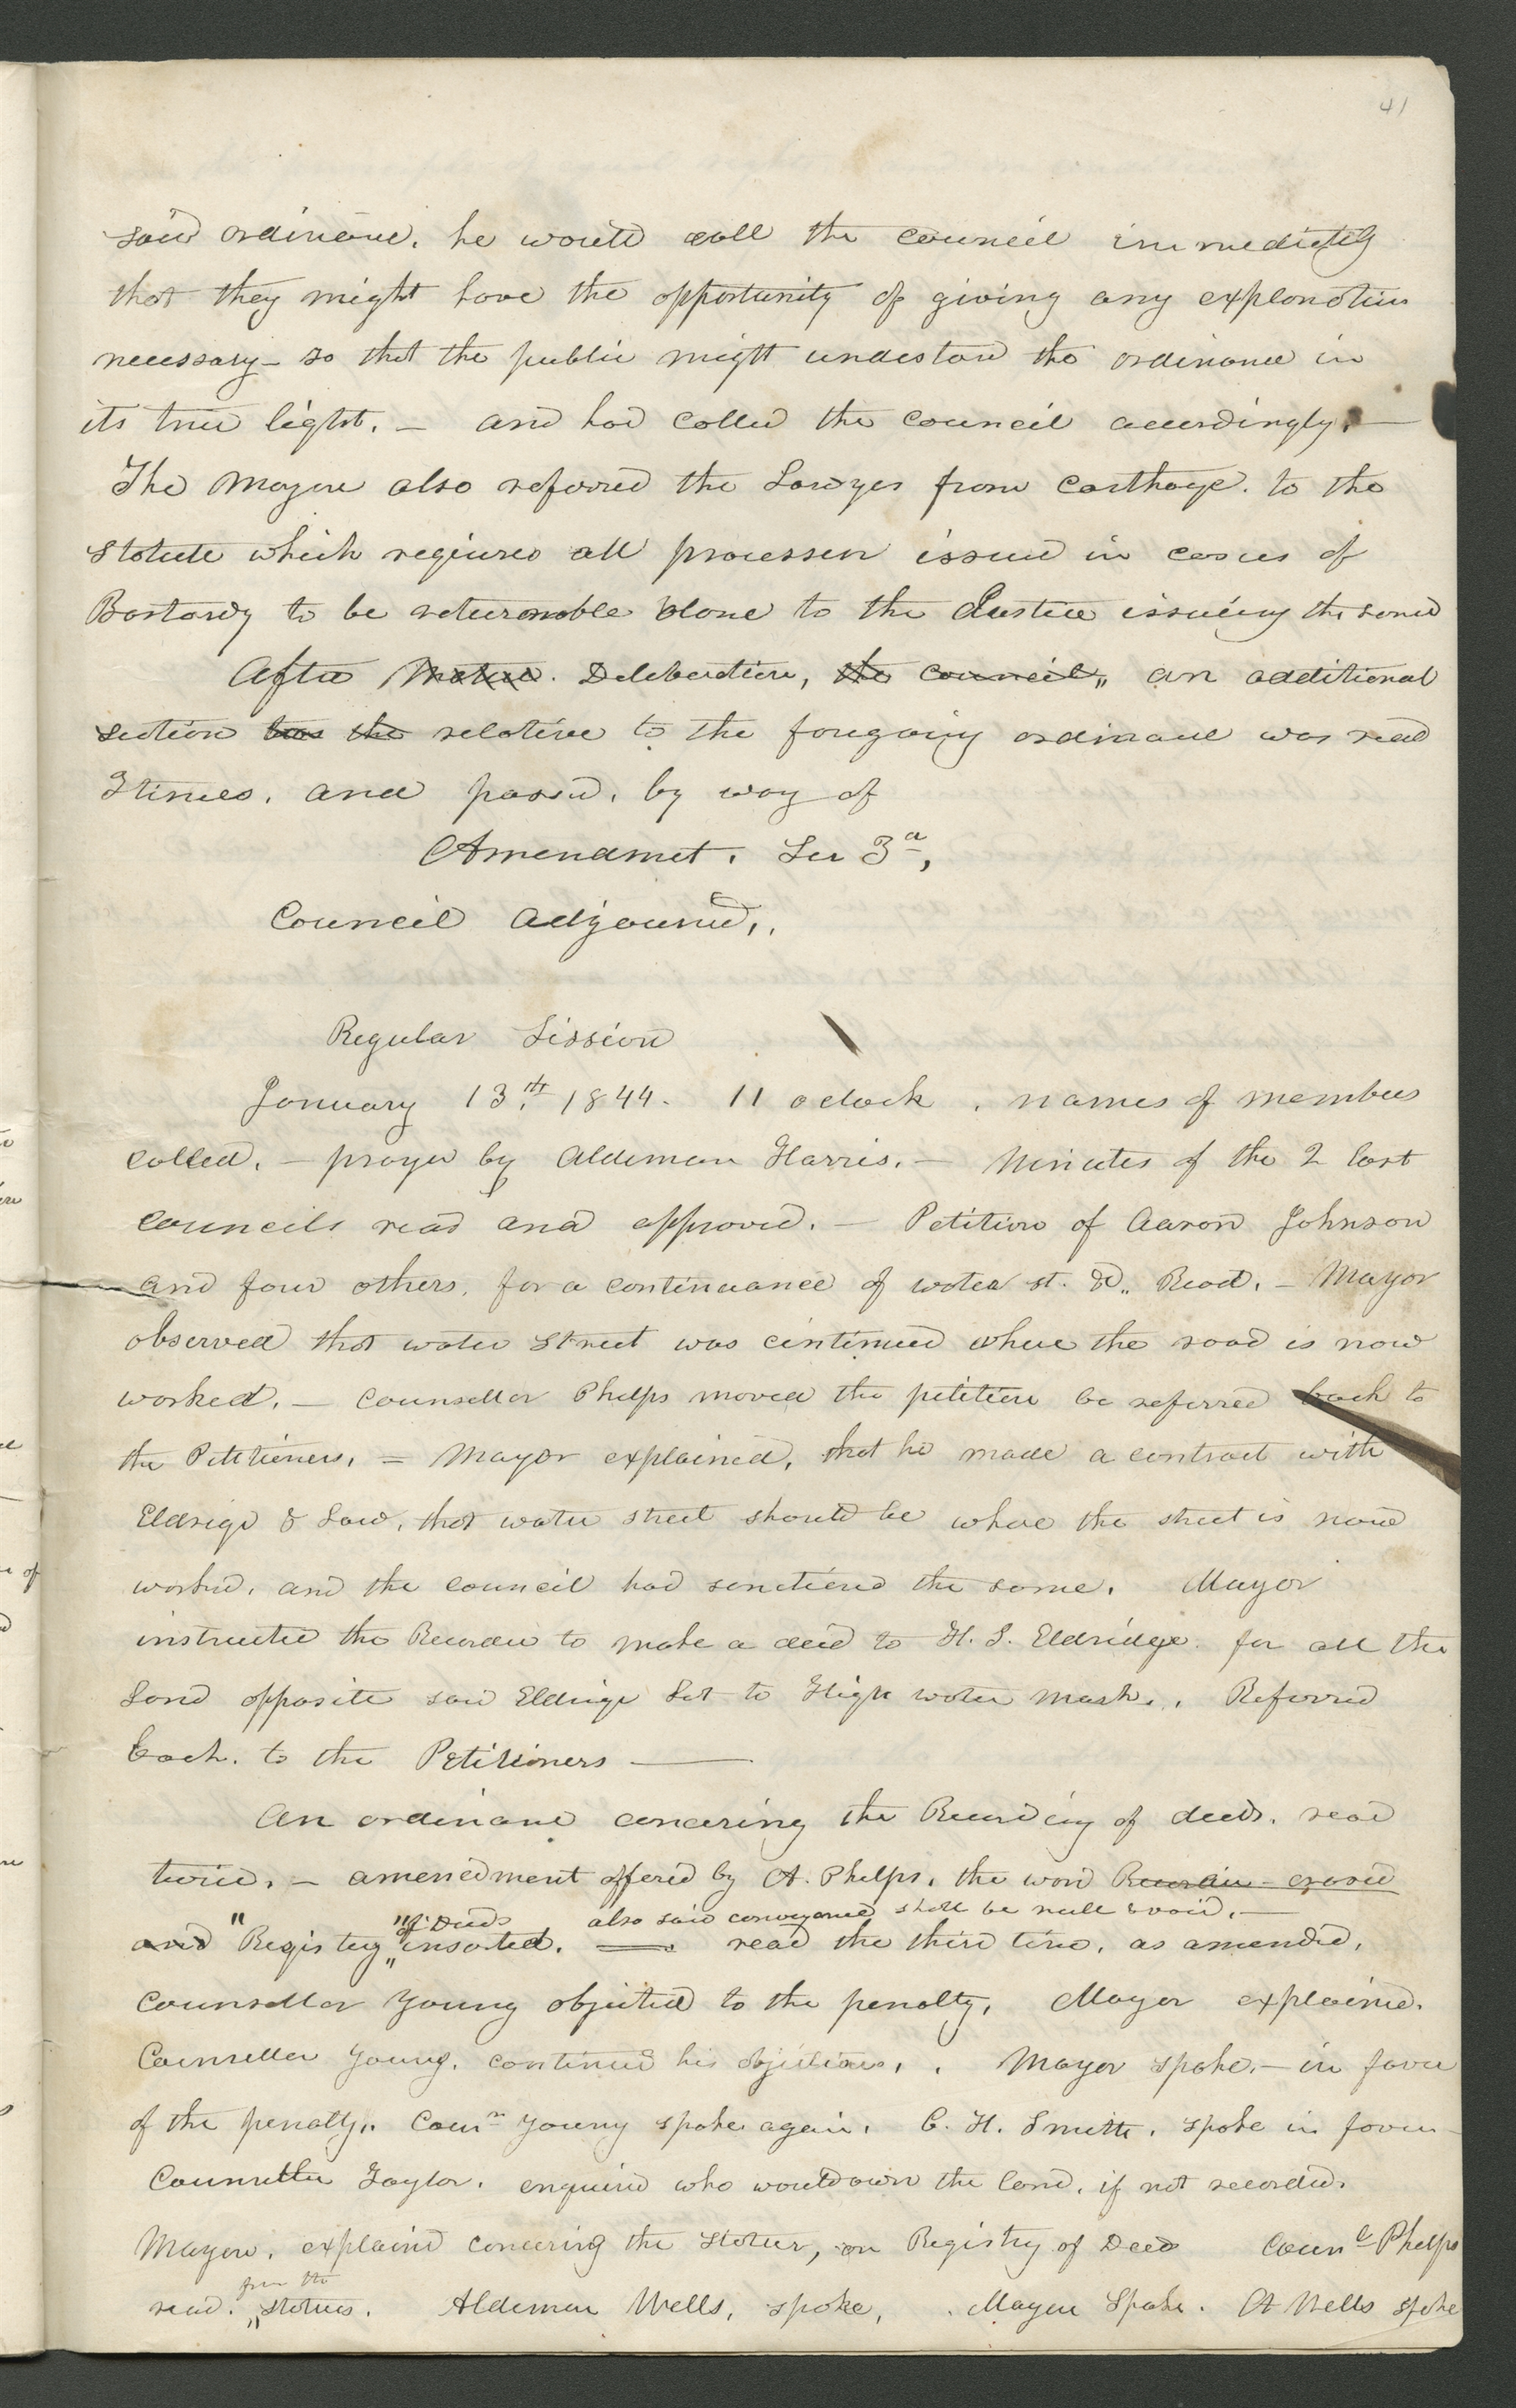 41
said ordinance. he would call the council immediately
that they might have the opportunity of giving any explanation
necessary - so that the public might understand the ordinance in
its true light. - and had called the council accordingly. —
The Mayor also referred the Lawyer from Carthage. to the
Statute which requires all processes issued in cases of
Bastardy to be returnable alone to the Justice issuing the same
After Mature. Deliberation, the council,, an additional
section was the relative to the foregoing ordinance was read
3 times. and passed. by way of
Amendmet. Sec 3d,
Council Adjourned,.
Regular Session
January 13th 1844. 11 oclock. names of members
called. - prayer by Alderman Harris. - Minutes of the 2 last
councils read and approved. - Petition of Aaron Johnson
and four others. for a continuance of water st. &c,, Read. - Mayor
observed that water Street was continued where the road is now
worked. - Counsellor Phelps moved the petition be referred back to
the Petitioners. = Mayor explained, that he made a contract with
Eldrige & Law, that water street should be where the street is now
worked. and the council had sanctioned the same. Mayor
instructed the Recorder to make a deed to H. I. Eldridge. for all the
Land opposite said Eldrige Lot to High water mark.. Referred
back. to the Petitioners —
An ordinance concering the Recording of deeds. read
twice. - amendment offered by A. Phelps. the word Recorder erased
of Deeds also said conveyance shall be null & void. -
and "Registry" inserted. — read the third time. as amended.
Counsellor Young objected to the penalty. Mayor explained.
Counsellor Young. continued his objections.. Mayor spoke. - in favor
of the penalty.. Counr Young spoke again. C. H. Smith. spoke in favor -
Counsellor Taylor. enquired who would own the land. if not recorded.
Mayor. explained concering the Statute, on Registry of Deeds Counl Phelps
from the
read. statutes. Alderman Wells, spoke, . Mayor Spoke. A Wells spoke